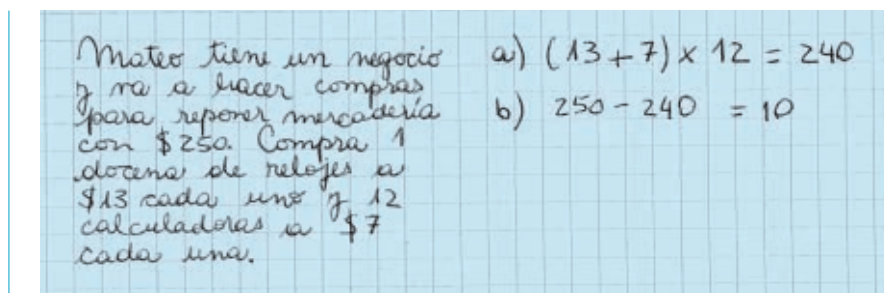 Mateo tiene un negocio
y va a hacer compras
para reponer mercadería
con $250. Compra 1
docena de relojes a
$13 cada uno y 12
calculadoras a $7
cada una.
a) (13 + 7) x 12 = 240
b) 250 - 240 = 10